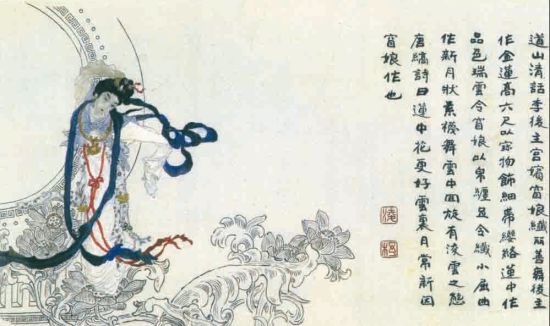 道山清話李後主宮嬪窅娘纖丽善舞後主
作金蓮高六尺以宝物飾細帶纓絡蓮中作
品色瑞雲令窅娘以帛纏足令纖小屈曲
作新月狀素襪舞雲中回旋有凌雲之態
唐縞詩曰蓮中花更好雲裏月常新因
窅娘作也